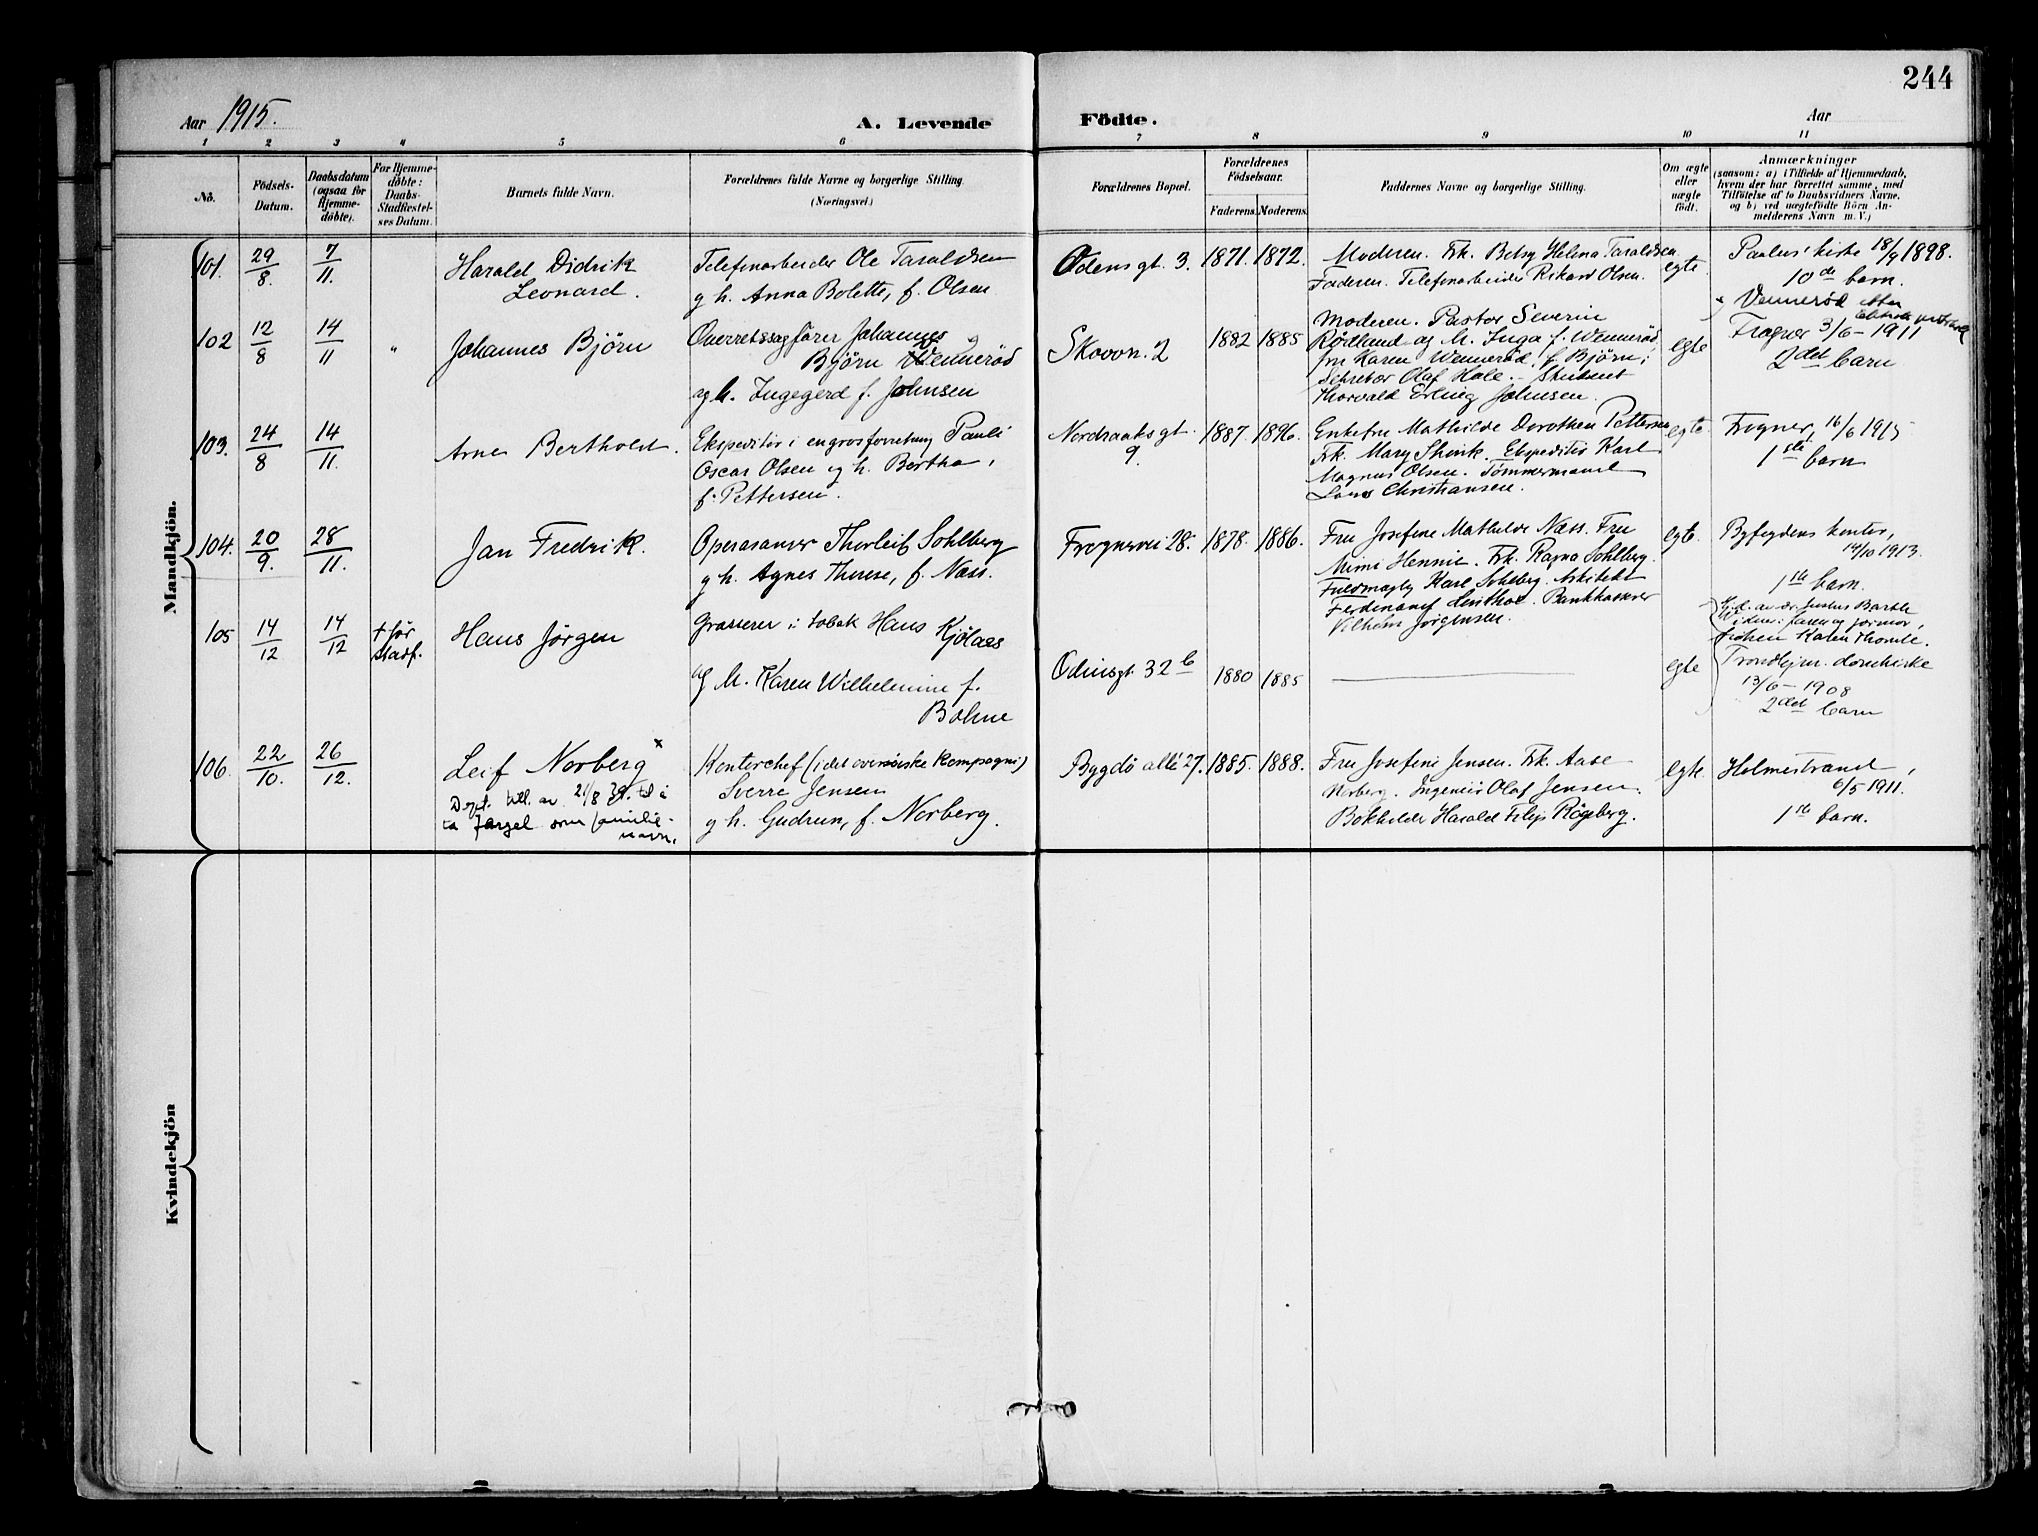 244
Aar 1915.
A. Levende
Födte.
Aar
1 2 3 4 5 6 7 8 9 10 11
No.
Födsels-
Datum.
Daabsdatum
(ogsaa för
Hjemme-
döbte).
For Hjemme-
döbte:
Daabs-
Stadfæstel-
ses Datum.
Barnets fulde Navn.
Forældrenes fulde Navne og borgerlige Stilling.
(Næringsvei.)
Forældrenes Bopæl.
Forældrenes
Födselsaar.
Faderens. Moderens.
Faddernes Navne og borgerlige Stilling.
Om ægte
eller
uægte
födt.
Anmærkninger
(saasom: a) i Tilfælde af Hjemmedaab,
hvem der har forrettet samme, med
Tilföielse af to Daabsvidners Navne,
og b) ved uægtefödte Börn An-
melderens Navn m. V.)
Mandkjön.
101. 29/8. 7/11.
Harald Didrik
Leonard.
Telefonarbeider Ole Taraldsen
g h. Anna Bolette, f. Olsen
Odens gt. 3. 1871. 1872.
Moderen. Frk. Betsy Helena Taraldsen
Faderen. Telefonarbeider Rikard Olsen.
egte.
Paulus' kirke 18/9 1898.
10de barn.
102 12/8 14/11 "
Johannes Björn
Overretssagförer Johannes
Björn Wenneröd
og h. Ingegerd f. Johnsen
Skovvn. 2 1882 1885
Moderen. Pastor Severin
Rødland og h. Inga f. Wenneröd,
fru Karen Wenneröd f. Bjørn;
Sekretær Olaf Hole. – Student
Thorvald Erling Johnsen.
egte
Vennerød etter
Frogner 3/6 – 1911
2det barn
103. 24/8 14/11.
Arne Berthold.
Ekspeditör i engrosforretning Pauli
Oscar Olsen og h. Bertha,
f. Pettersen.
Nordraaks gt.
9. 1887. 1896.
Enkefru Mathilde Dorothea Pettersen
Frk. Mary Skink. Ekspeditör Karl
Magnus Olsen. Tömmermand
Lars Christiansen.
egte.
Frogner, 16/6 1915
1ste barn
104. 20/9. 28/11.
Jan Fredrik.
Operasanger Thorleif Sohlberg
g h. Agnes Therese, f. Næss.
Frognervei 28. 1878. 1886.
Fru Josefine Mathilde Næss. Fru
Mimi Hennie. Frk. Ragna Sohlberg.
Karl Sohlberg. Arkitekt
Ferdinand. Bankkasserer
Vilhelm Jörgensen.
egte.
Byfogdens kontor,
14/10 1913.
1ste barn.
105 14/12 14/12 † för
stadf.
Hans Jörgen
Grosserer i tobak Hans Kjölaas
og h. Karen Wilhelmine f.
Bohne
Odinsgt. 32b 1880 1885
egte
Hjd. av dr. Justus Barth
Vidner: faren og formor,
fröken Karen Thomle.
Trondhjem. domkirke
13/6 – 1908
2det barn
106. 22/10. 26/12.
Leif Norberg x
Dept. till. av 21/8 39. til å
ta Jarsel som familie-
navn.
Kontorchef (i det oversöiske kompagni)
Sverre Jensen
g h. Gudrun, f. Norberg.
Bygdö allé 27. 1885. 1888.
Fru Josefine Jensen. Frk. Aase
Norberg. Ingeniör Olaf Jensen.
Bokholder Harald Filip Rögeberg.
egte.
Holmestrand,
6/5 1911.
1ste barn.
Kvindekjön